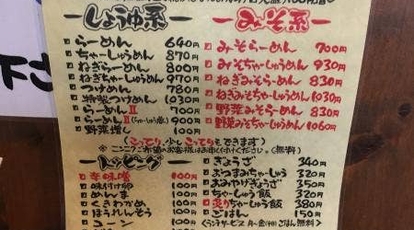 しょうゆ系
らーめん 640円
ちゃーしゅうめん 870円
ねぎらーめん 770円
ねぎちゃーしゅうめん 970円
つけめん 780円
特製つけめん 930円
らーめんⅡ 700円
らーめんⅡ(ちゃーしゅう増) 900円
野菜増し 100円
みそ系
みそらーめん 700円
みそちゃーしゅうめん 930円
ねぎみそらーめん 830円
ねぎみそちゃーしゅうめん 1030円
野菜みそらーめん 830円
野菜みそちゃーしゅうめん 1060円
こってり、少しこってりもできます
ニンニクご希望のお客様はお申し付けください。(無料)
トッピング
辛味噌 100円
味付け卵 100円
めんま 100円
くきわかめ 100円
ほうれんそう 100円
コーン 100円
ぎょうざ 340円
おつまみちゃーしゅう 320円
おみやげぎょうざ 350円
ちゃーしゅう飯 320円
炙りちゃーしゅう飯 380円
ごはん 150円
ランチサービス 月～金(平日)ごはん無料
下さ